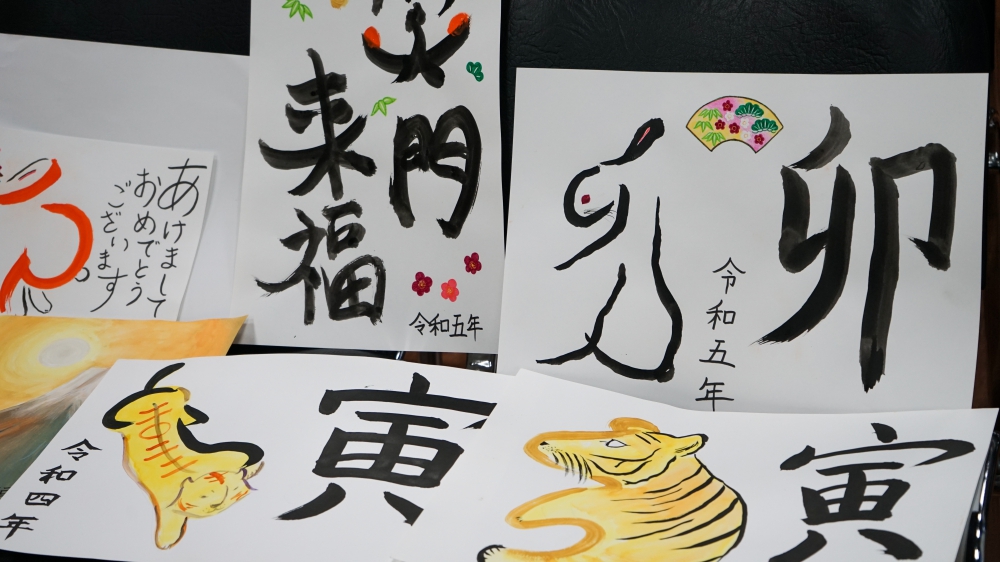 あけまして
おめでとう
ございます
笑門
来福
令和五年
卯
令和五年
寅
令和四年
寅